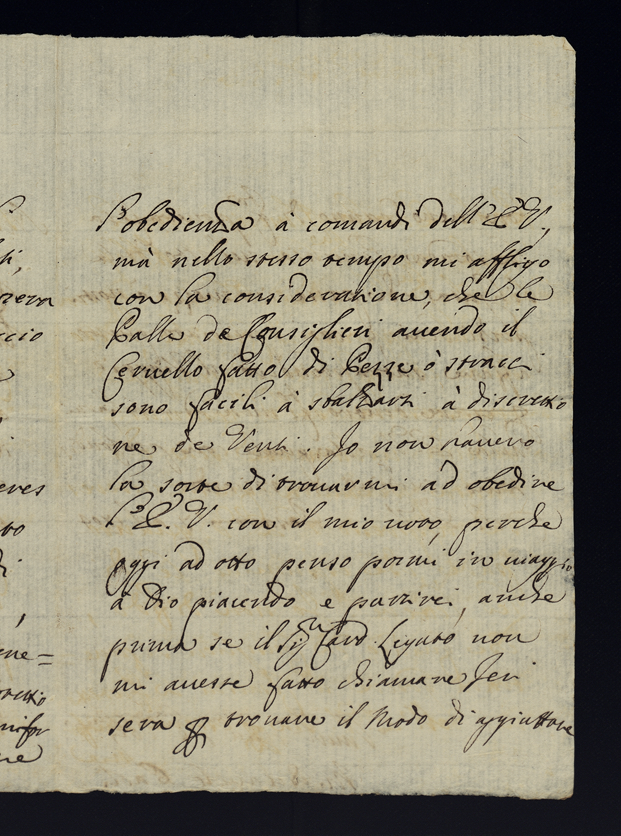 l'obedienza à comandi dell'E.V.,
mà nello stesso tempo mi affligo
con la consideratione, che le
Palle de Consiglieri avendo il
Cervello fatto di Pezze ò stracci
sono facili à sbalzarsi à discretio
ne de Venti. Io non havero
la sorte di trovarmi ad obedire
l'E.V. con il mio voto, perche
oggi ad otto penso pormi in viaggio
à Dio piacendo e partirei, anche
prima se il Sigr Card. Legato non
mi avesse fatto chiamare Jeri
sera trovare il Modo di aggiuttare
ti,
zera
ccio
eres
to
di
ene=
retto
nifor
ne